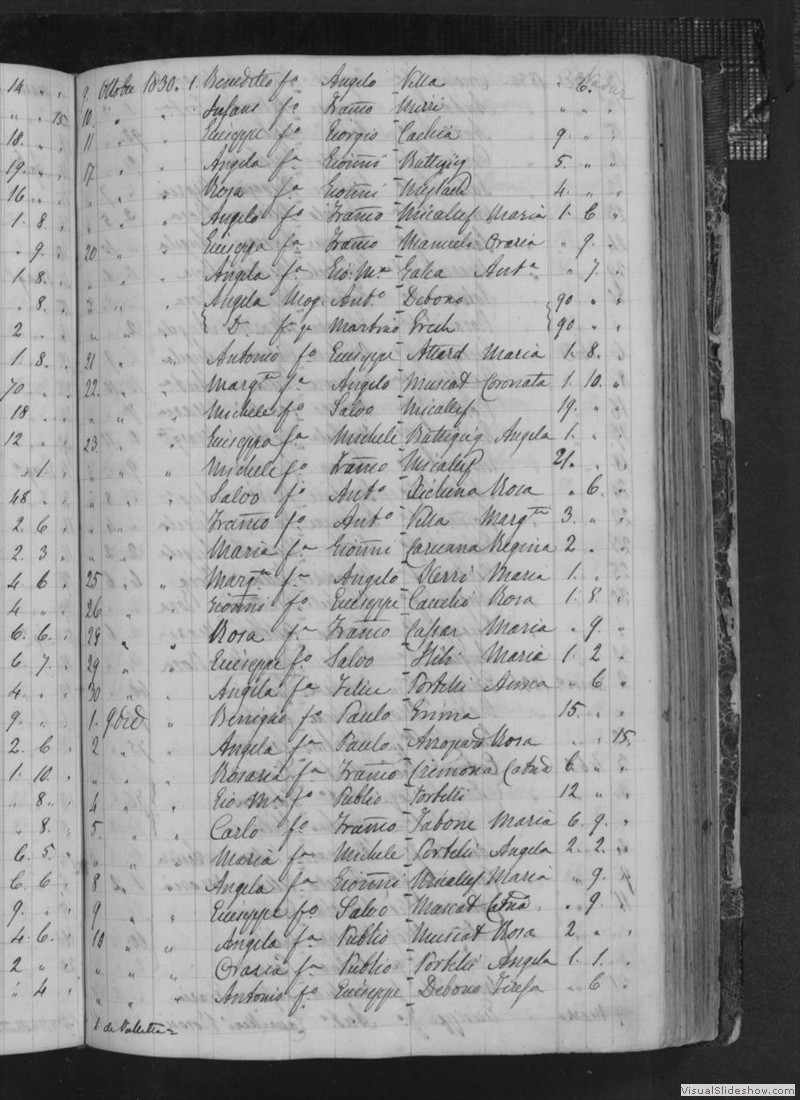 14 " " 9 Ottobre 1830. 1. Benedetto fo Angelo Villa " 6. "
" " 15 10 " " Infans fo Franco Mirri " " "
18. " " 11 " " Giuseppe fo Giorgio Cachia 9 " "
19. " " 17 " " Angela fa Gionni Buttigig 5. " "
16 " " " " " Rosa fa Gionni 4. " "
1. 8. " " " " Angelo fo Franco Micallef Maria 1. 6 "
" 9. " 20 " " Giuseppa fa Franco Manuele Orazia " 9. "
1 8. " " " " Angela fa Gio Ma Galea Anta " 7. "
" 8. " " " " Angela Mog. Anto Debono 90 " "
2 " " " " " D. fa qm Martino Grech 90 " "
1. 8. " 21 " " Antonio fo Giuseppe Attard Maria 1. 8. "
70 " " 22. " " Margta fa Angelo Muscat Coronata 1. 10. "
18 " " " " " Michele fo Salvo Micallef 19. " "
12 " " 23 " " Giuseppa fa Michele Buttigig Angela 1. " "
" 1. " " " " Michele fo Franco Micallef 21. " "
48 " " " " " Salvo fo Anto Rosa " 6. "
2. 6 " " " " Franco fo Anto Villa Margta 3. " "
2. 3 " " " " Maria fa Gionni Caruana Regina 2 " "
4. 6 " 25 " " Margta fa Angelo Maria 1. " "
4 " " 26 " " Gionni fo Giuseppe Rosa 1. 8. "
6. 6. " 28 " " Rosa fa Franco Cassar Maria " 9. "
6. 7. " 29 " " Giuseppe fo Salvo Maria 1. 2 "
4. " " 30 " " Angela fa Felice Portelli Anna " 6 "
9. " " 1. 9bre " Benigno fo Paulo Grima 15. " "
2. 6 " 2 " " Angela fa Paulo Azzopard Rosa " " 15.
1. 10. " " " " Rosaria fa Franco Cremona Catna 6. " "
" 8. " 4 " " Gio Ma fo Publio Portelli 12 " "
" 8. " 5. " " Carlo fo Franco Tabone Maria 6. 9. "
6. 5. " " " " Maria fa Michele Portelli Angela 2. 2. "
6. 6 " 8 " " Angela fa Gionni Micallef Maria " 9. "
9. " " 9 " " Giuseppe fo Salvo Muscat Catna " 9. "
4. 6. " 10 " " Angela fa Publio Muscat Rosa 2 " "
2 " " " " " Orazia fa Publio Portelli Angela 1. 1. "
" 4 " " " " Antonio fo Giuseppe Debono Teresa " 6 "
1 de Valletta
VisualSlideshow.com